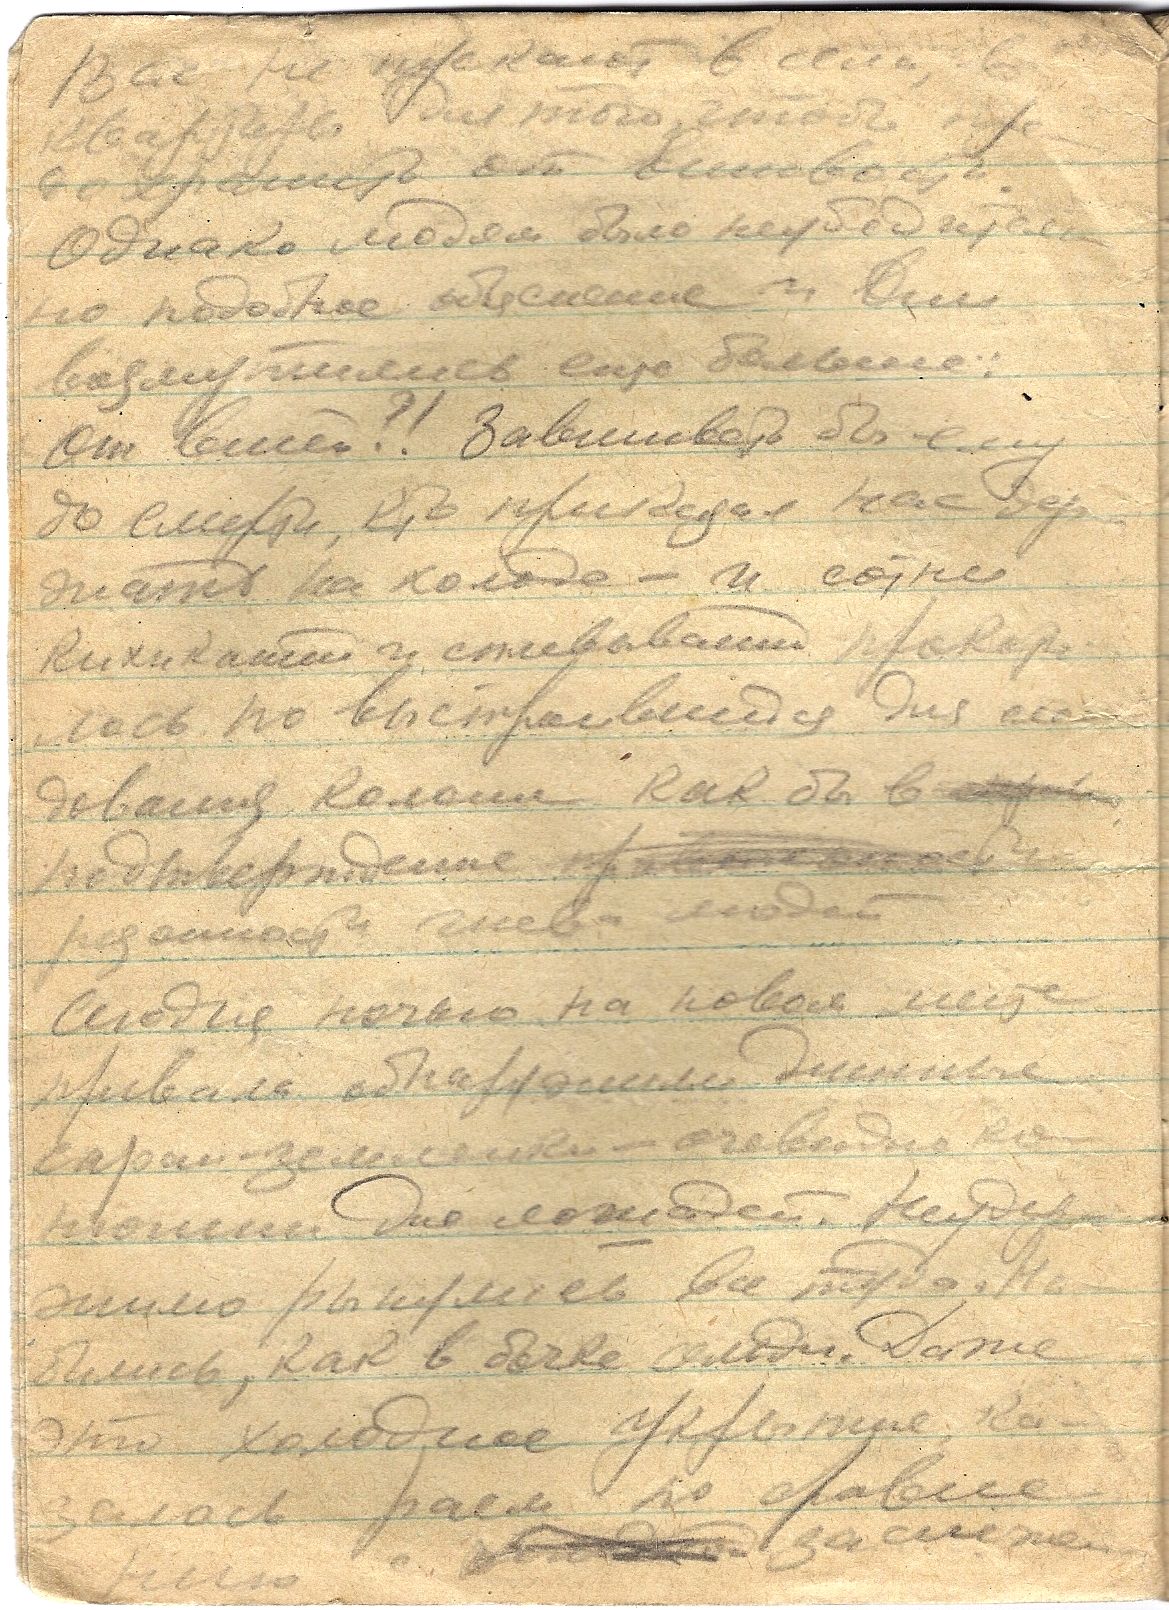 Вас не пускают в села, в
квартиры для того, чтобы пре-
дохранить от вшивости.
Однако людям было неубедитель
но подобное объяснение и они
возмутились еще больше:
От вшей?! Завшиветь бы ему
до смерти, кто приказал нас дер-
жать на холоде — и сотни
прокати-
лось по выстроившейся для сле-
дования колонн как бы в
подтверждение
резонности гнева людей
Сегодня ночью на новом месте
привала обнаружили длинные
сараи-землянки — очевидно ко-
нюшни для лошадей. Неудер-
жимо рынулись все туда. На-
бились, как в бочке сельди. Даже
это холодное укрытие ка-
залось раем по сравне-
нию с заснежен